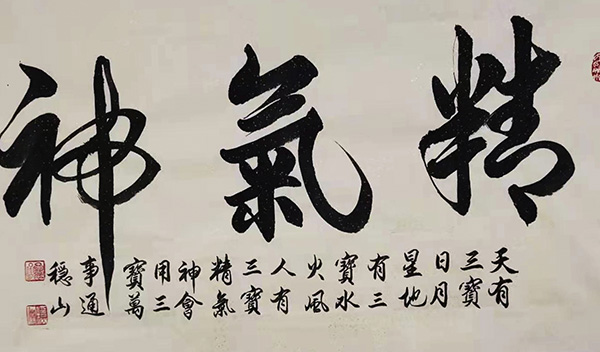 精氣神
天有
三寶
日月
星地
有三
寶水
火風
人有
三寶
精氣
神會
用三
寶萬
事通
穩山